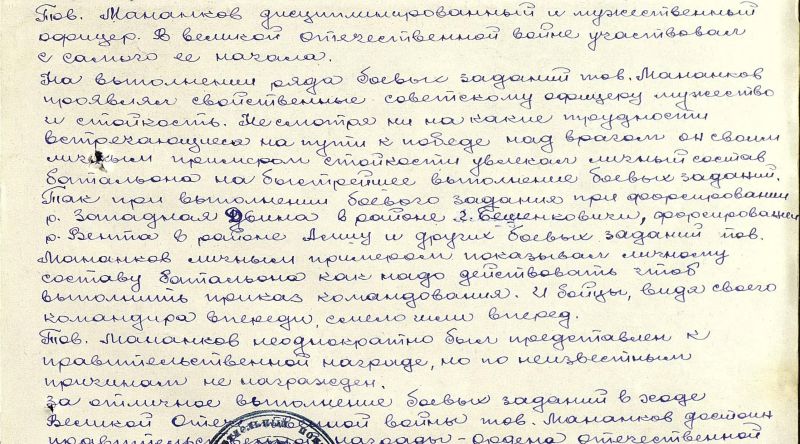 Тов. Мананков дисциплинированный и мужественный
офицер. В великой отечественной войне участвовал
с самого ее начала.
На выполнении ряда боевых заданий тов. Мананков
проявлял свойственные советскому офицеру мужество
и стойкость. Несмотря ни на какие трудности
встречающиеся на пути к победе над врагом он своим
личным примером стойкости увлекал личный состав
батальона на быстрейшее выполнение боевых заданий.
Так при выполнении боевого задания при форсировании
р. Западная Двина в районе г. Бешенковичи, форсировании
р. Вента в районе и других боевых заданий тов.
Мананков личным примером показывал личному
составу батальона как надо действовать чтоб
выполнить приказ командования. И бойцы, видя своего
командира впереди, смело шли вперед.
Тов. Мананков неоднократно был представлен к
правительственной награде, но по неизвестным
причинам не награжден.
За отличное выполнение боевых заданий в ходе
Великой Оте нной войны тов. Мананков достоин
правительс награды - ордена отечественной